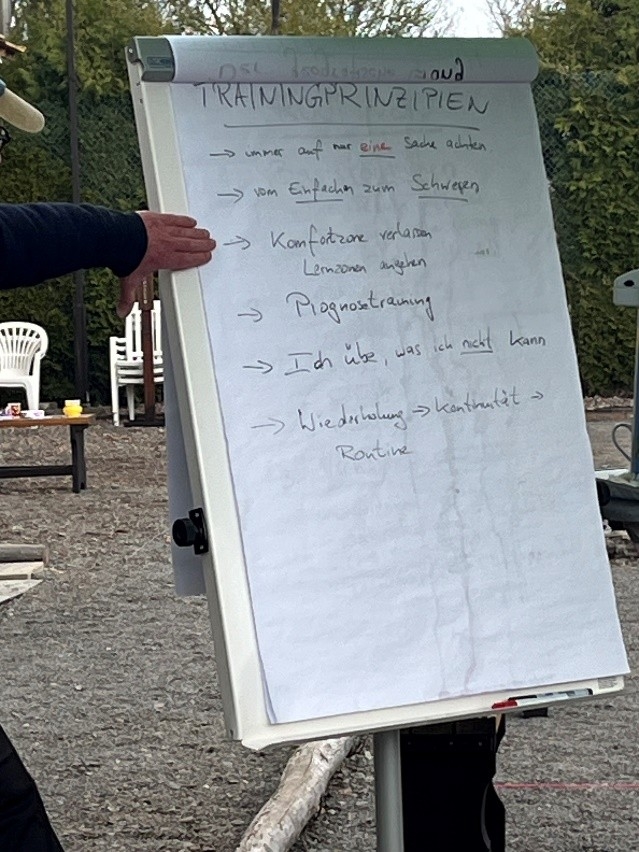 und
TRAININGPRINZIPIEN
→ immer auf nur eine Sache achten
→ vom Einfachen zum Schweren
→ Komfortzone verlassen
Lernzonen angehen
→ Prognosetraining
→ Ich übe, was ich nicht kann
→ Wiederholung → Kontinuität →
Routine